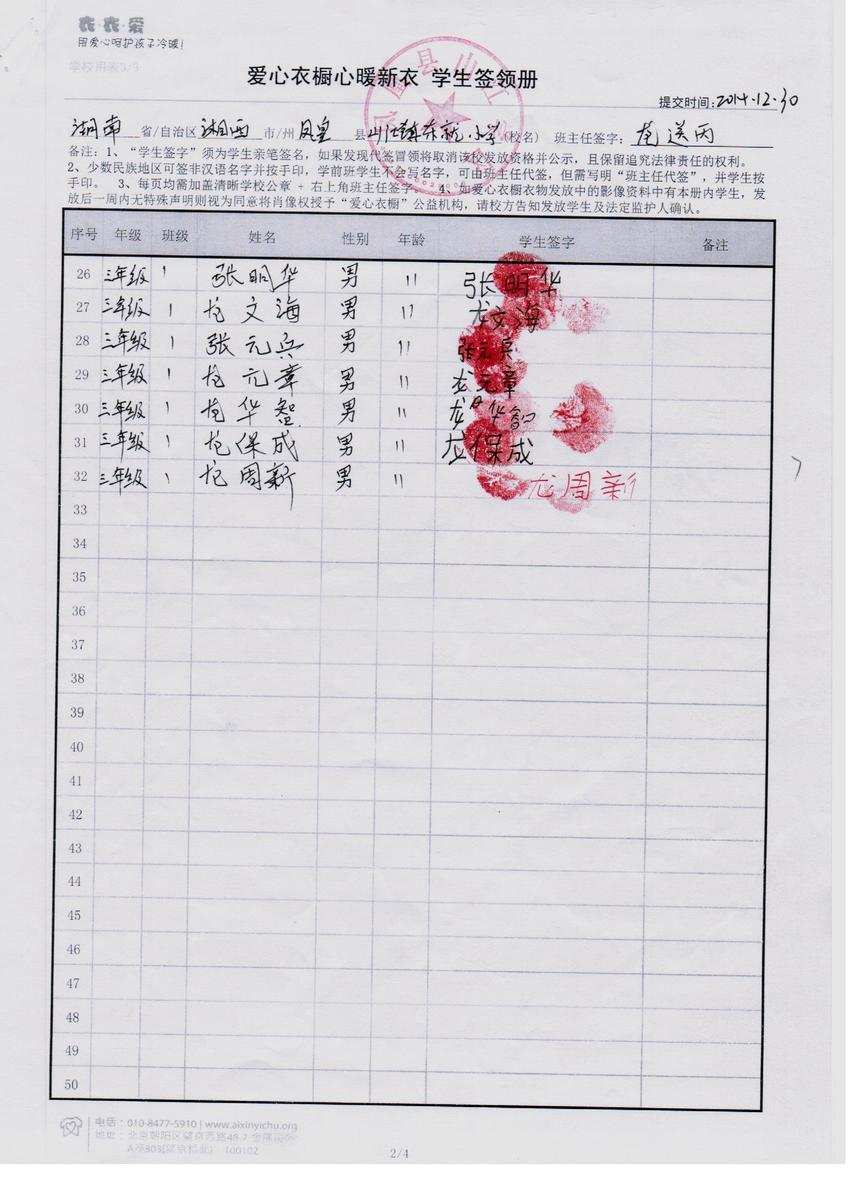 衣·衣·爱
用爱心呵护孩子冷暖!
学校用表3/3
爱心衣橱心暖新衣 学生签领册
提交时间:2014.12.30
湖南 省/自治区 湘西 市/州 凤皇 县 山江镇东就小学(校名) 班主任签字:龙送丙
备注:1、“学生签字”须为学生亲笔签名,如果发现代签冒领将取消该校发放资格并公示,且保留追究法律责任的权利。
2、少数民族地区可签非汉语名字并按手印,学前班学生不会写名字,可由班主任代签,但需写明“班主任代签”,并学生按
手印。 3、每页均需加盖清晰学校公章 + 右上角班主任签字。 4、如爱心衣橱衣物发放中的影像资料中有本册内学生,发
放后一周内无特殊声明则视为同意将肖像权授予“爱心衣橱”公益机构,请校方告知发放学生及法定监护人确认。
序号 年级 班级 姓名 性别 年龄 学生签字 备注
26 三年级 1 张明华 男 11 张明华
27 三年级 1 龙文海 男 11 龙文海
28 三年级 1 张元兵 男 11 张元兵
29 三年级 1 龙元章 男 11 龙元章
30 三年级 1 龙华智 男 11 龙华智
31 三年级 1 龙保成 男 11 龙保成
32 三年级 1 龙周新 男 11 龙周新
33
34
35
36
37
38
39
40
41
42
43
44
45
46
47
48
49
50
电话:010-8477-5910 | www.aixinyichu.org
地址:北京朝阳区望京西路48-7 金隅国际
A座303(望京标北) 100102
2/4